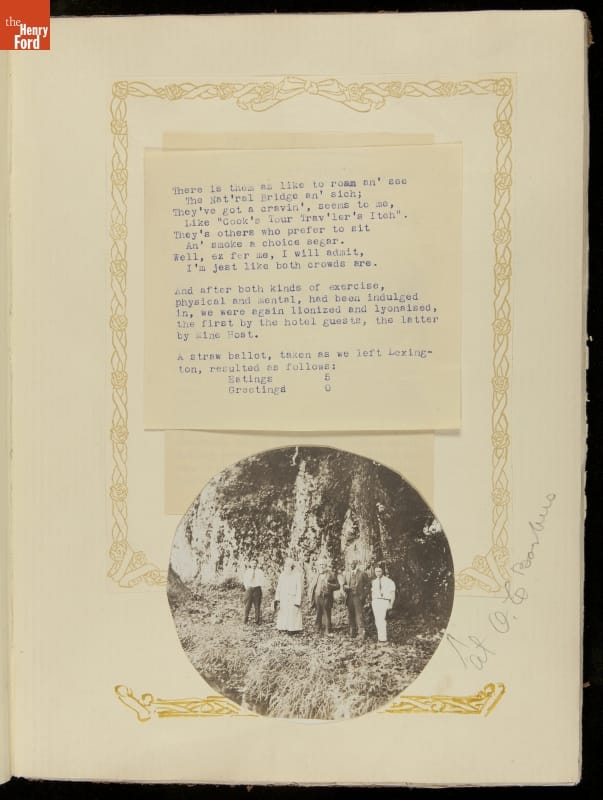 the
Henry
Ford
There is them as like to roam an' see
The Nat'ral Bridge an' sich;
They've got a cravin', seems to me,
Like "Cook's Tour Trav'ler's Itch".
They's others who prefer to sit
An' smoke a choice segar.
Well, ez fer me, I will admit,
I'm jest like both crowds are.
And after both kinds of exercise,
physical and mental, had been indulged
in, we were again lionized and lyonaised,
the first by the hotel guests, the latter
by Mine Host.
A straw ballot, taken as we left Lexing-
ton, resulted as follows:
Eatings 5
Greetings 0
at O. C.